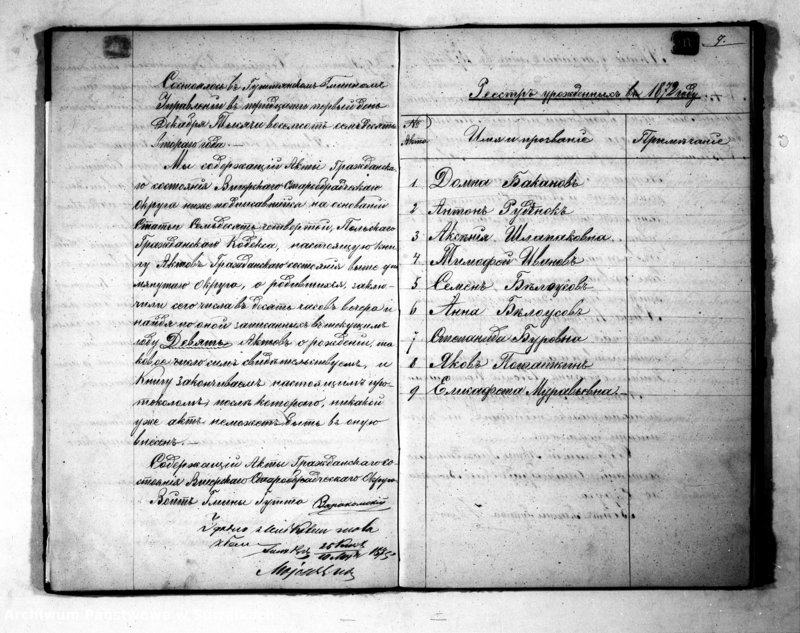 Состоялось въ Гуттянскомъ Гминномъ
Управленіи въ тридцать первый день
Декабря Тысяча восемьсотъ семьдесятъ
втораго года.—
Мы содержащій Акты Гражданска-
го состоянія Старобрядческаго
Округа ниже подписавшійся на основаніи
Статьи Семьдесятъ четвертой, Польскаго
Гражданскаго Кодекса, настоящую кни-
гу Актовъ Гражданскаго состоянія выше упо-
мянутаго Округа, о родившихся, заклю-
чили сего числа въ десять часовъ вечера и
найдя по оной записанныхъ въ текущемъ
году Девять Актовъ о рожденіи, та-
ковое число симъ свидѣтельствуемъ, и
Книгу заканчиваемъ настоящимъ про-
токоломъ после котораго, никакой
уже актъ неможетъ быть въ оную
внесенъ.—
Содержащій Акты Гражданскаго со-
стоянія Старобрядческаго Округа
Войтъ Гмины Гутта
9.
Реестръ урожденныхъ въ 1872 году
№ Акта
Имя и прозваніе
Примѣчаніе
1 Домна Бакановъ
2 Антонъ
3 Аксинія Шлапаковна
4 Тимофей Ивановъ
5 Семенъ Бѣлоусовъ
6 Анна Бѣлоусовъ
7 Степанида Буровна
8 Яковъ
9 Муравьовна
Archiwum Państwowe w Suwałkach